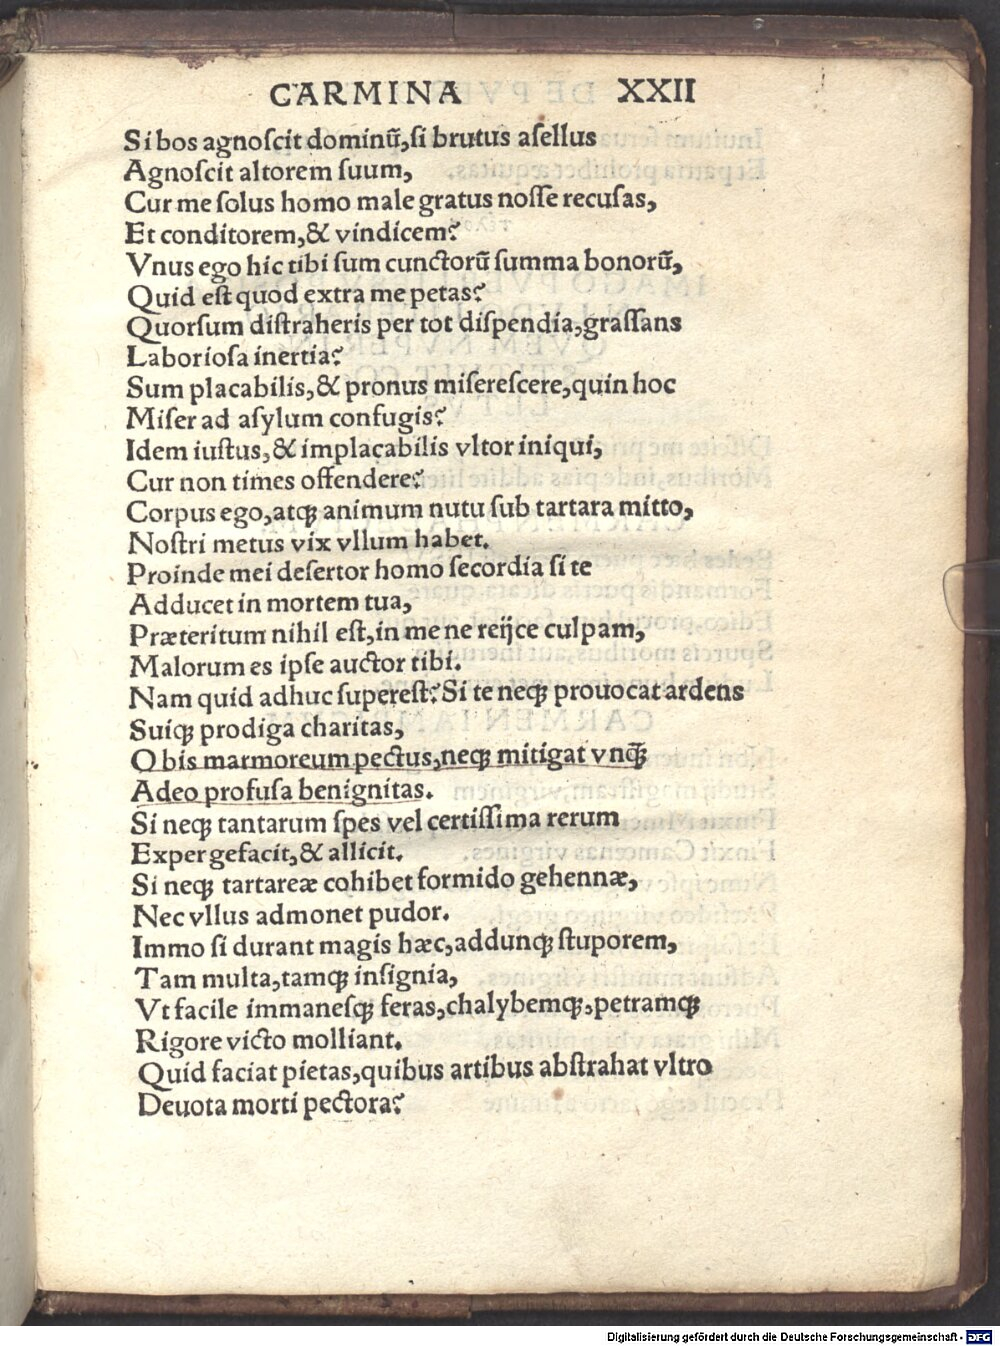 CARMINA XXII
Si bos agnoſcit dominū, ſi brutus aſellus
Agnoſcit altorem ſuum,
Cur me ſolus homo male gratus noſſe recuſas,
Et conditorem, & vindicem?
Vnus ego hic tibi ſum cunctorū ſumma bonorū,
Quid eſt quod extra me petas?
Quorſum diſtraheris per tot diſpendia, graſſans
Laborioſa inertia?
Sum placabilis, & pronus miſereſcere, quin hoc
Miſer ad aſylum confugis?
Idem iuſtus, & implacabilis vltor iniqui,
Cur non times offendere?
Corpus ego, atqꝫ animum nutu ſub tartara mitto,
Noſtri metus vix vllum habet.
Proinde mei deſertor homo ſecordia ſi te
Adducet in mortem tua,
Præteritum nihil eſt, in me ne reijce culpam,
Malorum es ipſe auctor tibi.
Nam quid adhuc ſupereſt? Si te neqꝫ prouocat ardens
Suiqꝫ prodiga charitas,
O bis marmoreum pectus, neqꝫ mitigat vnqꝫ̄
Adeo profuſa benignitas.
Si neqꝫ tantarum ſpes vel certiſſima rerum
Expergefacit, & allicit.
Si neqꝫ tartareæ cohibet formido gehennæ,
Nec vllus admonet pudor.
Immo ſi durant magis hæc, addunqꝫ ſtuporem,
Tam multa, tamqꝫ inſignia,
Vt facile immaneſqꝫ feras, chalybemqꝫ, petramqꝫ
Rigore victo molliant.
Quid faciat pietas, quibus artibus abſtrahat vltro
Deuota morti pectora?
Digitalisierung gefördert durch die Deutsche Forschungsgemeinschaft - DFG